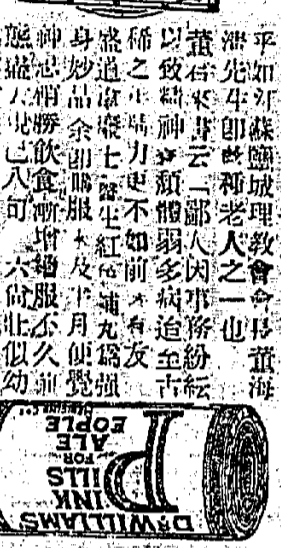 平如江蘇鹽城理教會會長董海
先生即此種老人之一也
董君來書云「鄙人因事務紛紜
以致精神頹體弱多病迨至古
稀之年精力更不如前有友
盛道韋廉士醫生紅色補丸爲強
身妙品余即購服未及半月便覺
神志稍勝飲食漸增繼服不久前
態盡去現已八旬有六尚壯似幼
DR WILLIAMS
PINK
PILLS
FOR
PALE
PEOPLE